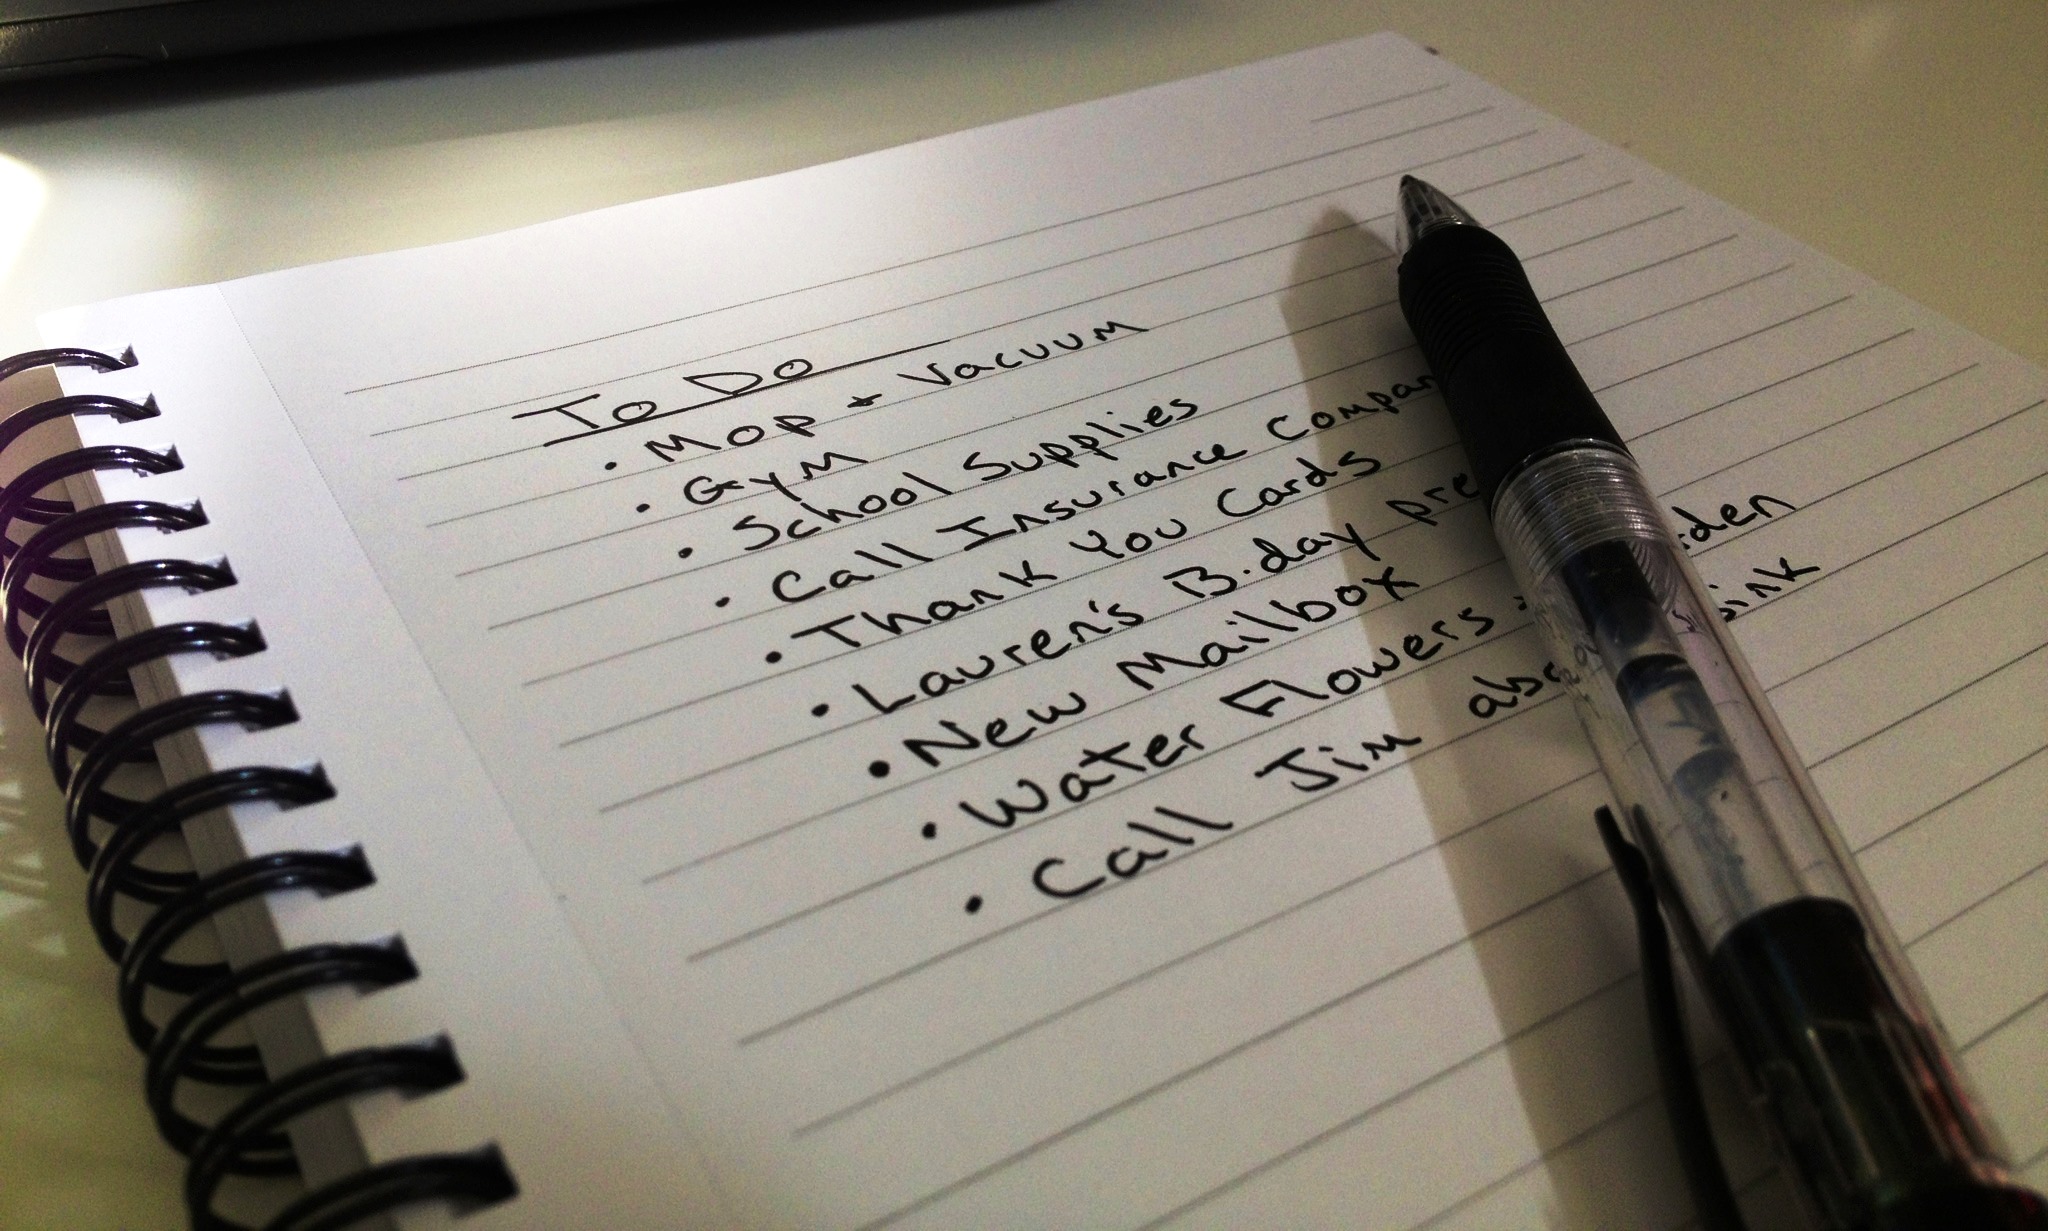 To Do
• Mop + Vacuum
• Gym
• School Supplies
• Call Insurance Compan
• Thank You Cards
• Lauren's B.day pre
• New Mailbox
• Water Flowers
• Call Jim sink